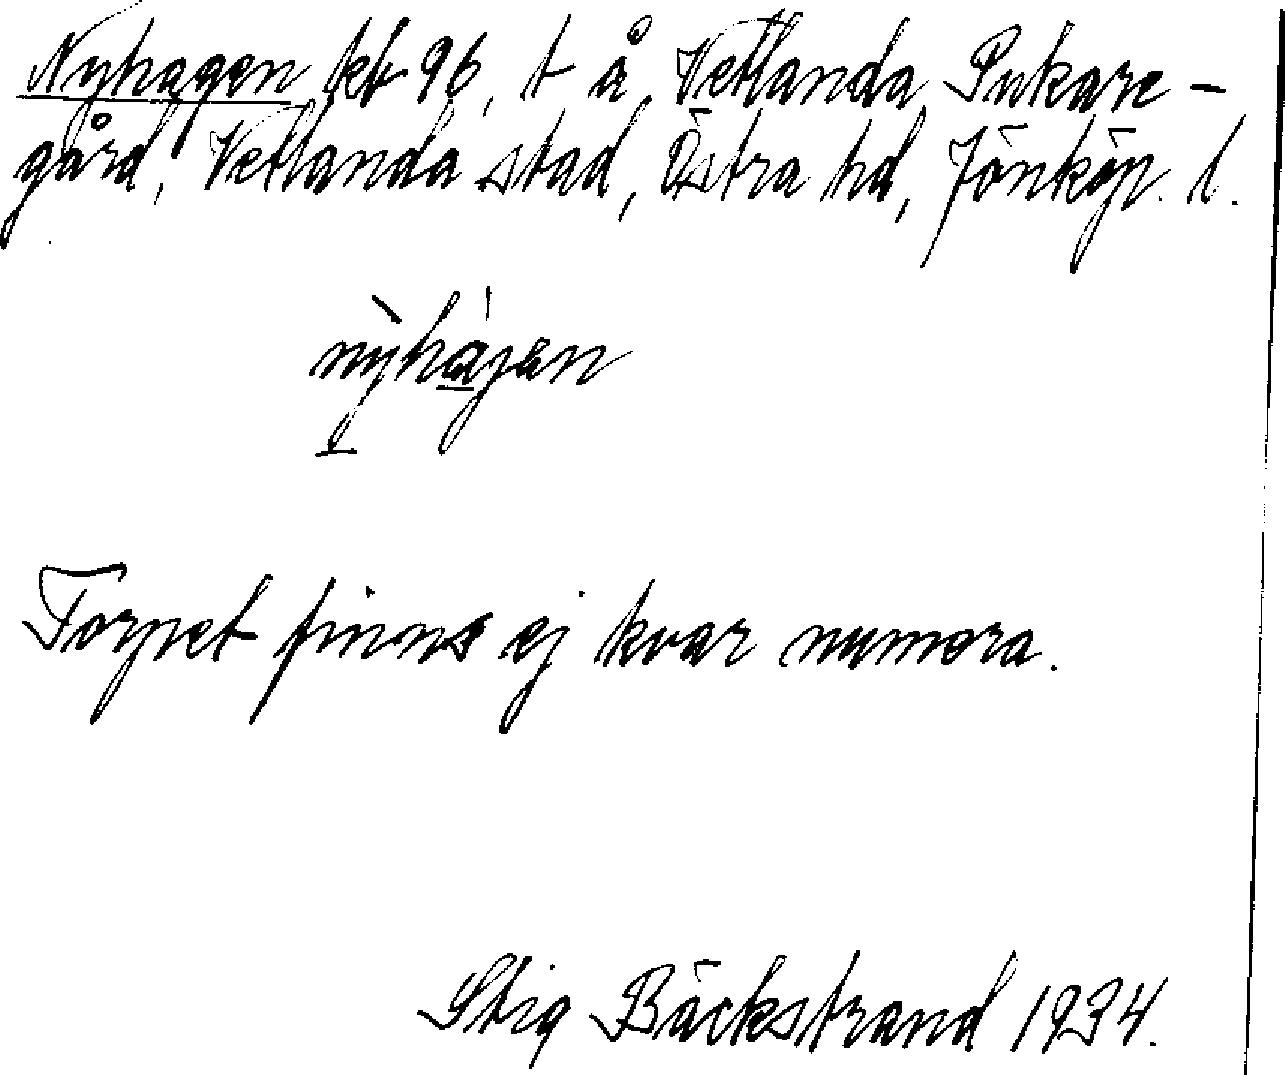 Nyhagen kb 96, t å Vetlanda Pukare-
gård, Vetlanda stad, Östra hd, Jönköp. l.
nỳhájen
Torpet finns ej kvar numera.
Stig Bäckstrand 1934.